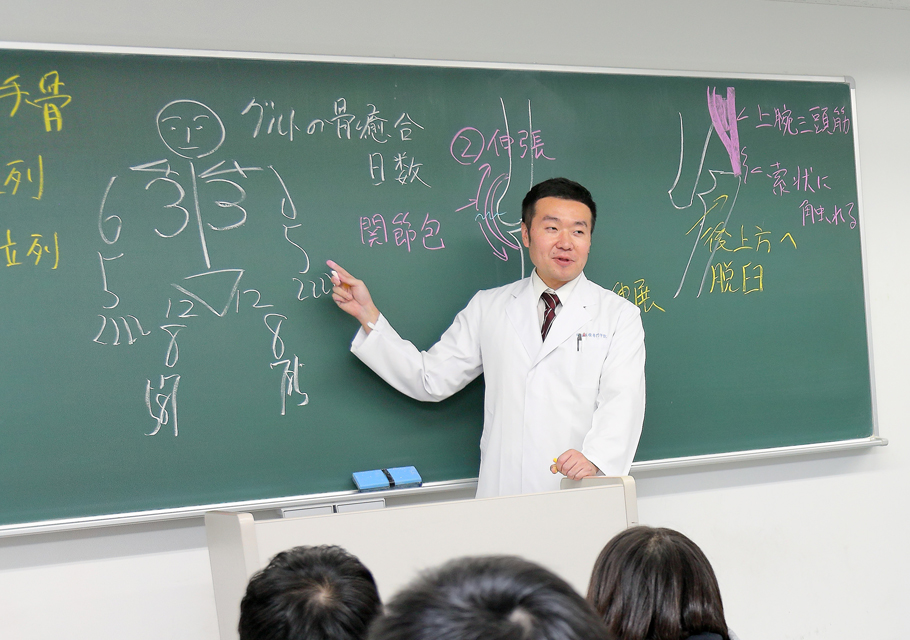 手骨
列
立列
グルトの骨癒合
日数
3 3
6
5
2222
5
222
12 12
8 8
②伸張
関節包
上腕三頭筋
索状に
触れる
後上方へ
脱臼
伸展